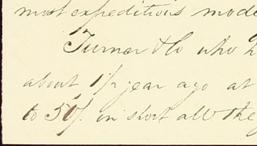 most expeditious mode
Turner & Co who h
about 1½ year ago at
to 50/. in short all the